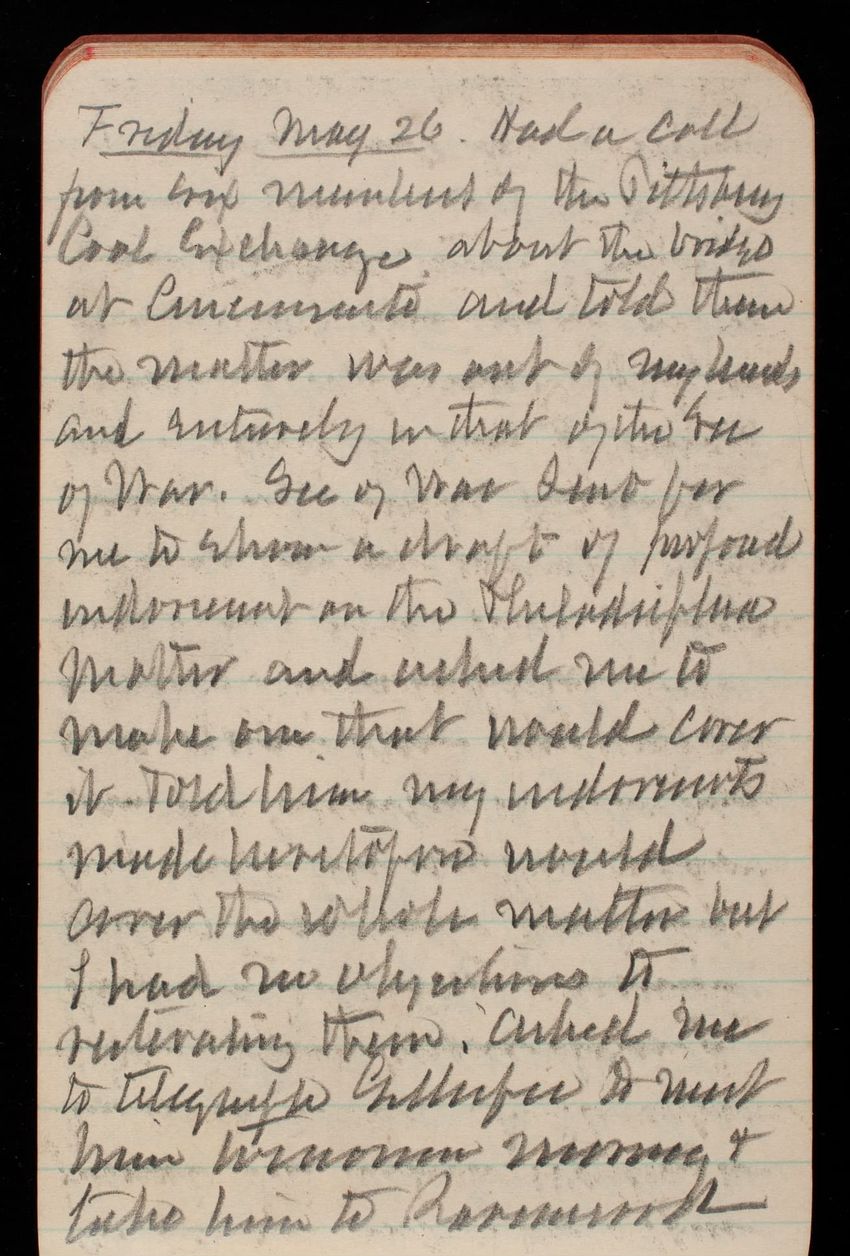 Friday May 26. Had a call
from six members of the Pittsburg
Coal Exchange about the bridge
at Cincinnati and told them
the matter was out of my hands
and entirely in that of the Sec
of War. Sec of War sent for
me to show a draft of proposed
indorsement on the Philadelphia
matter and asked me to
make one that would cover
it. Told him my indorsements
made heretofore would
cover the whole matter but
I had no objections to
reiterating them. Asked me
to telegraph Gillespie to meet
him tomorrow morning &
take him to